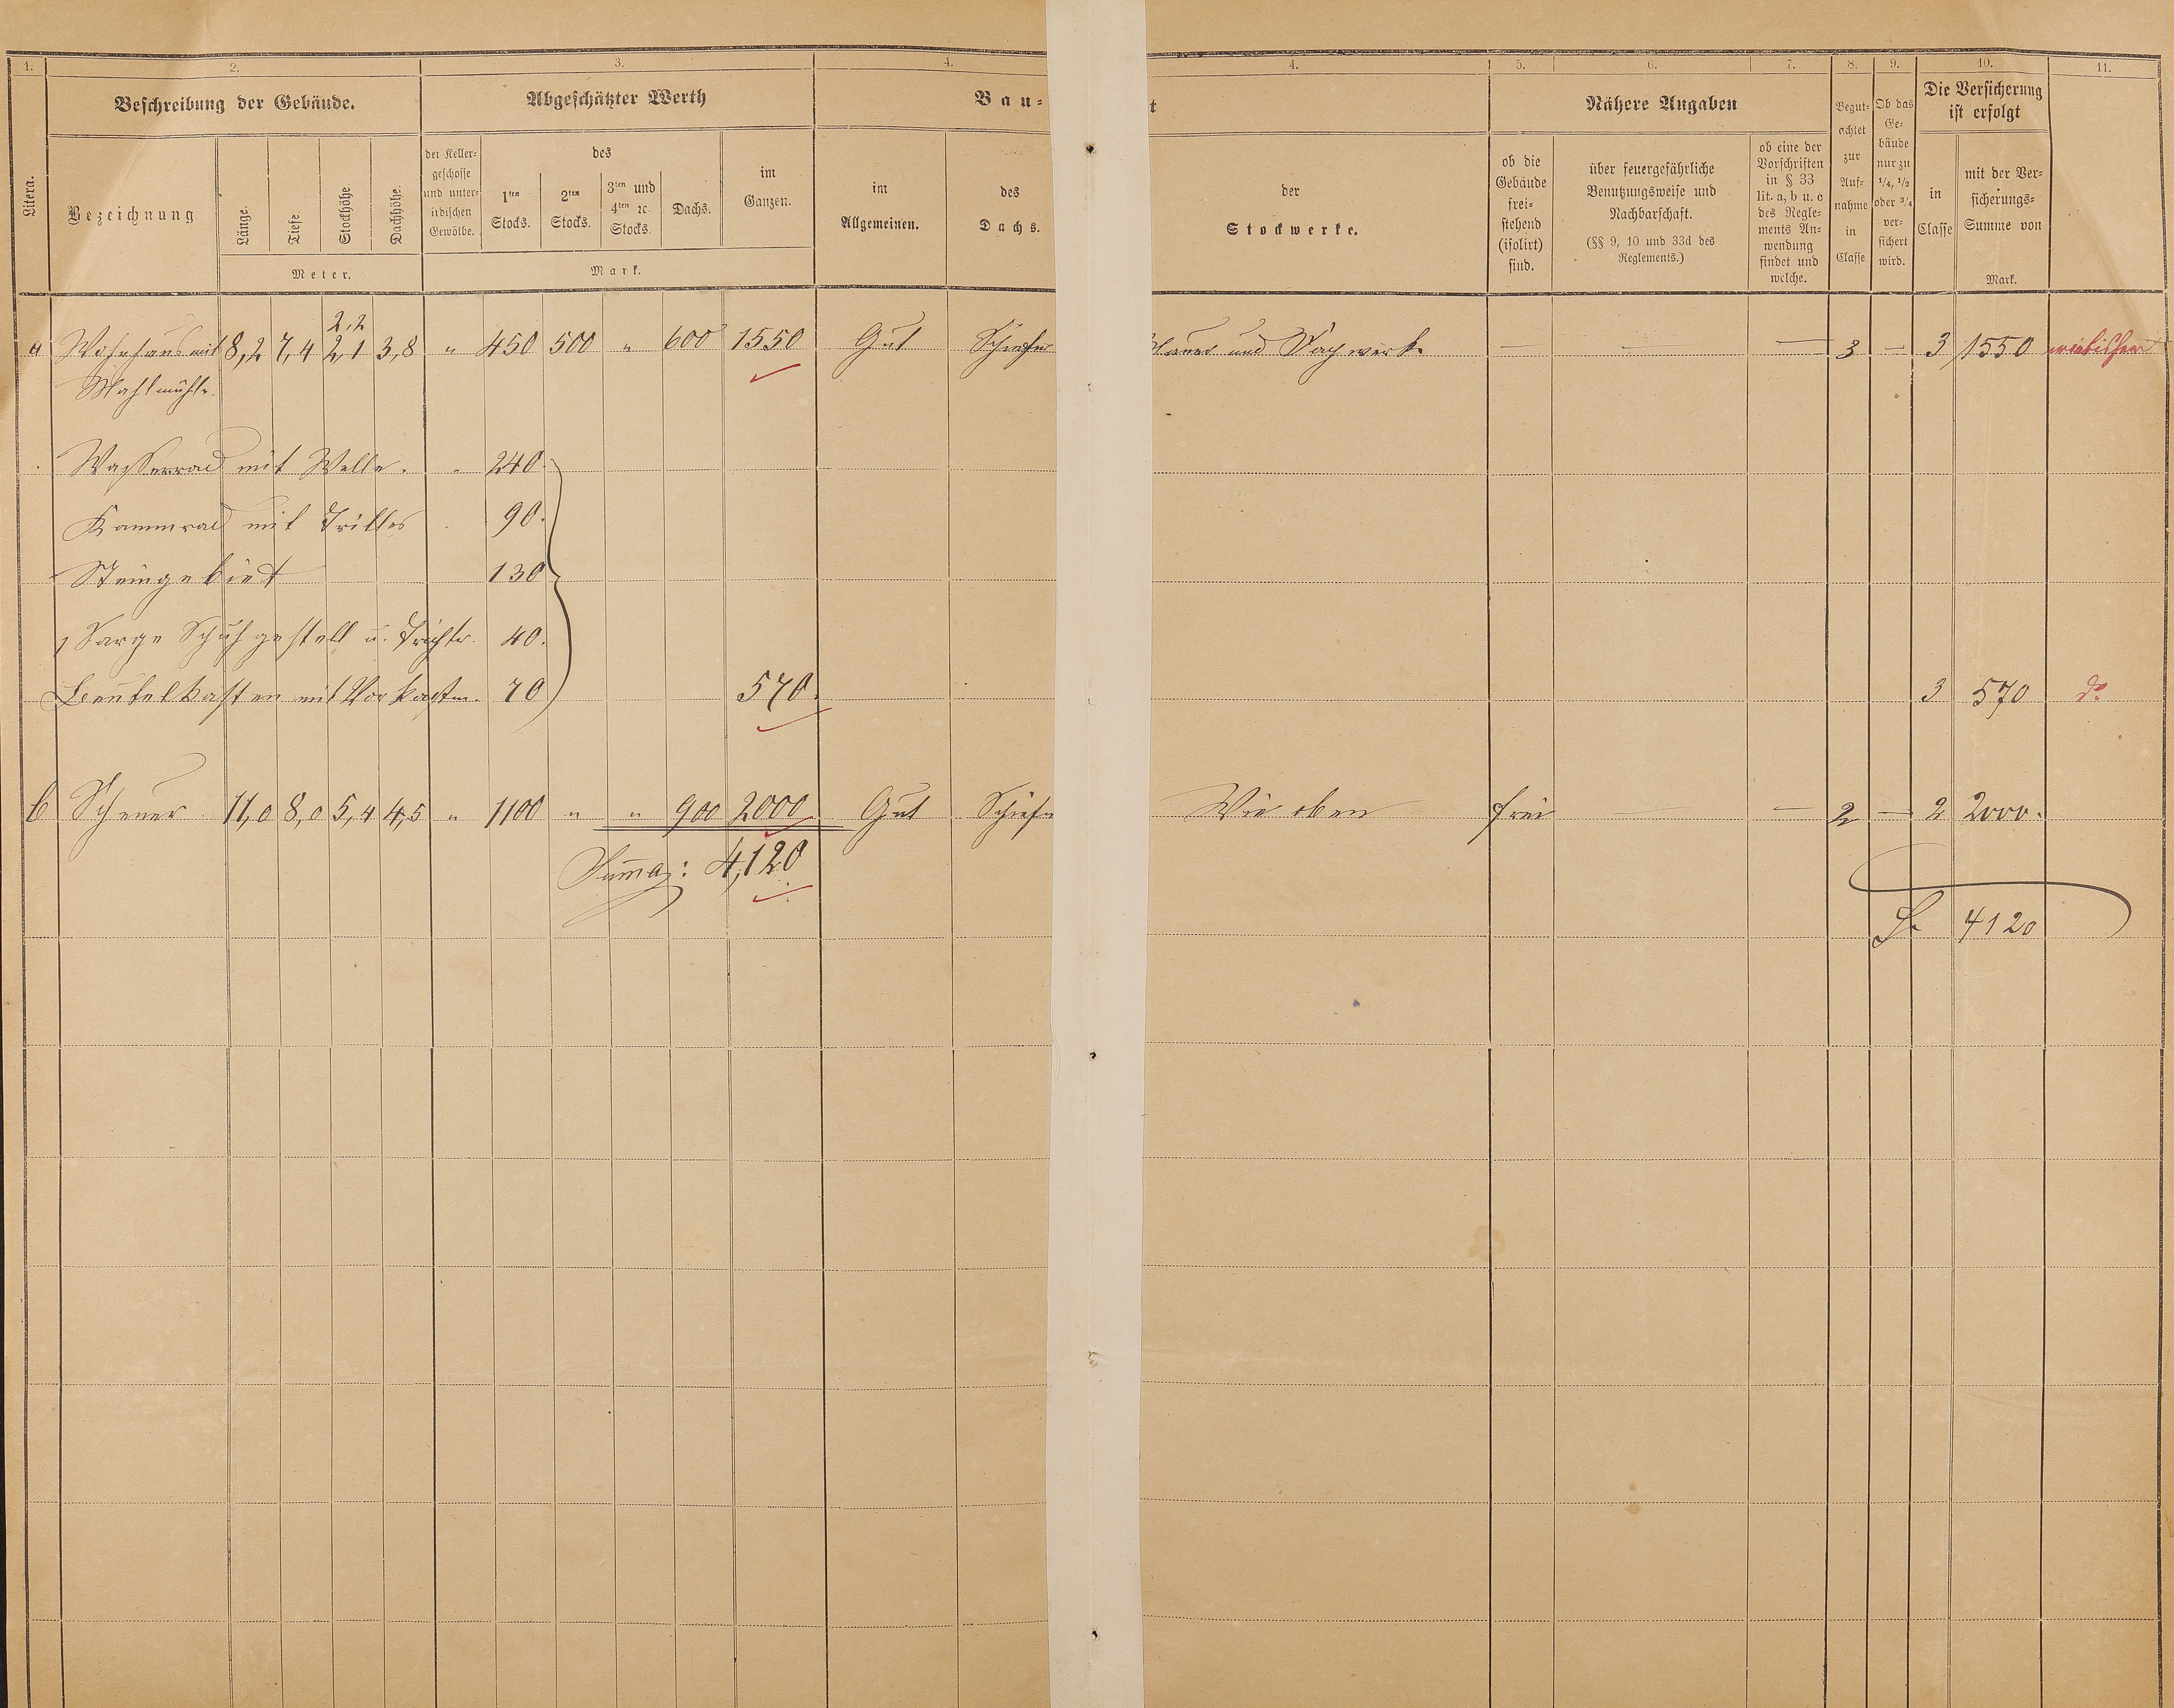 1. 2. 3. 4. 4. 5. 6. 7. 8. 9. 10. 11.
Litera.
Beschreibung der Gebäude.
Bezeichnung
Länge.
Tiefe.
Stockhöhe
Dachhöhe.
Meter.
Abgeschätzter Werth
der Keller-
geschosse
und unter-
irdischen
Gewölbe.
des
1ten
Stocks.
2ten
Stocks.
3ten und
4ten ꝛc
Stocks
Dachs.
im
Ganzen.
Mark.
Bau-
im
Allgemeinen.
des
Dachs.
t
der
Stockwerke.
Nähere Angaben
ob die
Gebäude
frei-
stehend
(isolirt)
sind.
über feuergefährliche
Benutzungsweise und
Nachbarschaft.
(§§ 9, 10 und 33d des
Reglements.)
ob eine der
Vorschriften
in § 33
lit. a, b u. c
des Regle-
ments An-
wendung
findet und
welche.
Begut-
achtet
zur
Auf-
nahme
in
Classe
Ob das
Ge-
bäude
nur zu
1/4, 1/2
oder 3/4
ver-
sichert
wird.
Die Versicherung
ist erfolgt
in
Classe
mit der Ver-
sicherungs-
Summe von
Mark.
2,2
a Wohnhaus mit 8,2 7,4 2,1 3,8 " 450 500 " 600 1550 Gut Schiefer Mauer und Fachwerk — — — 3 — 3 1550
Mahlmühle.
Wasserrad mit Welle. " 240.
Kammrad mit Trilles 90.
Steingebiet 130
1 Sarge Schuhgestell u. Trichter. 40.
Beutelkasten mit Vorkasten. 70 570. 3 570 do
b Scheuer 11,0 8,0 5,4 4,5 " 1100 " " 900 2000 Gut Schiefer Wie oben frei — — 2 — 2 2000.
Summa: 4,120
S. 4120